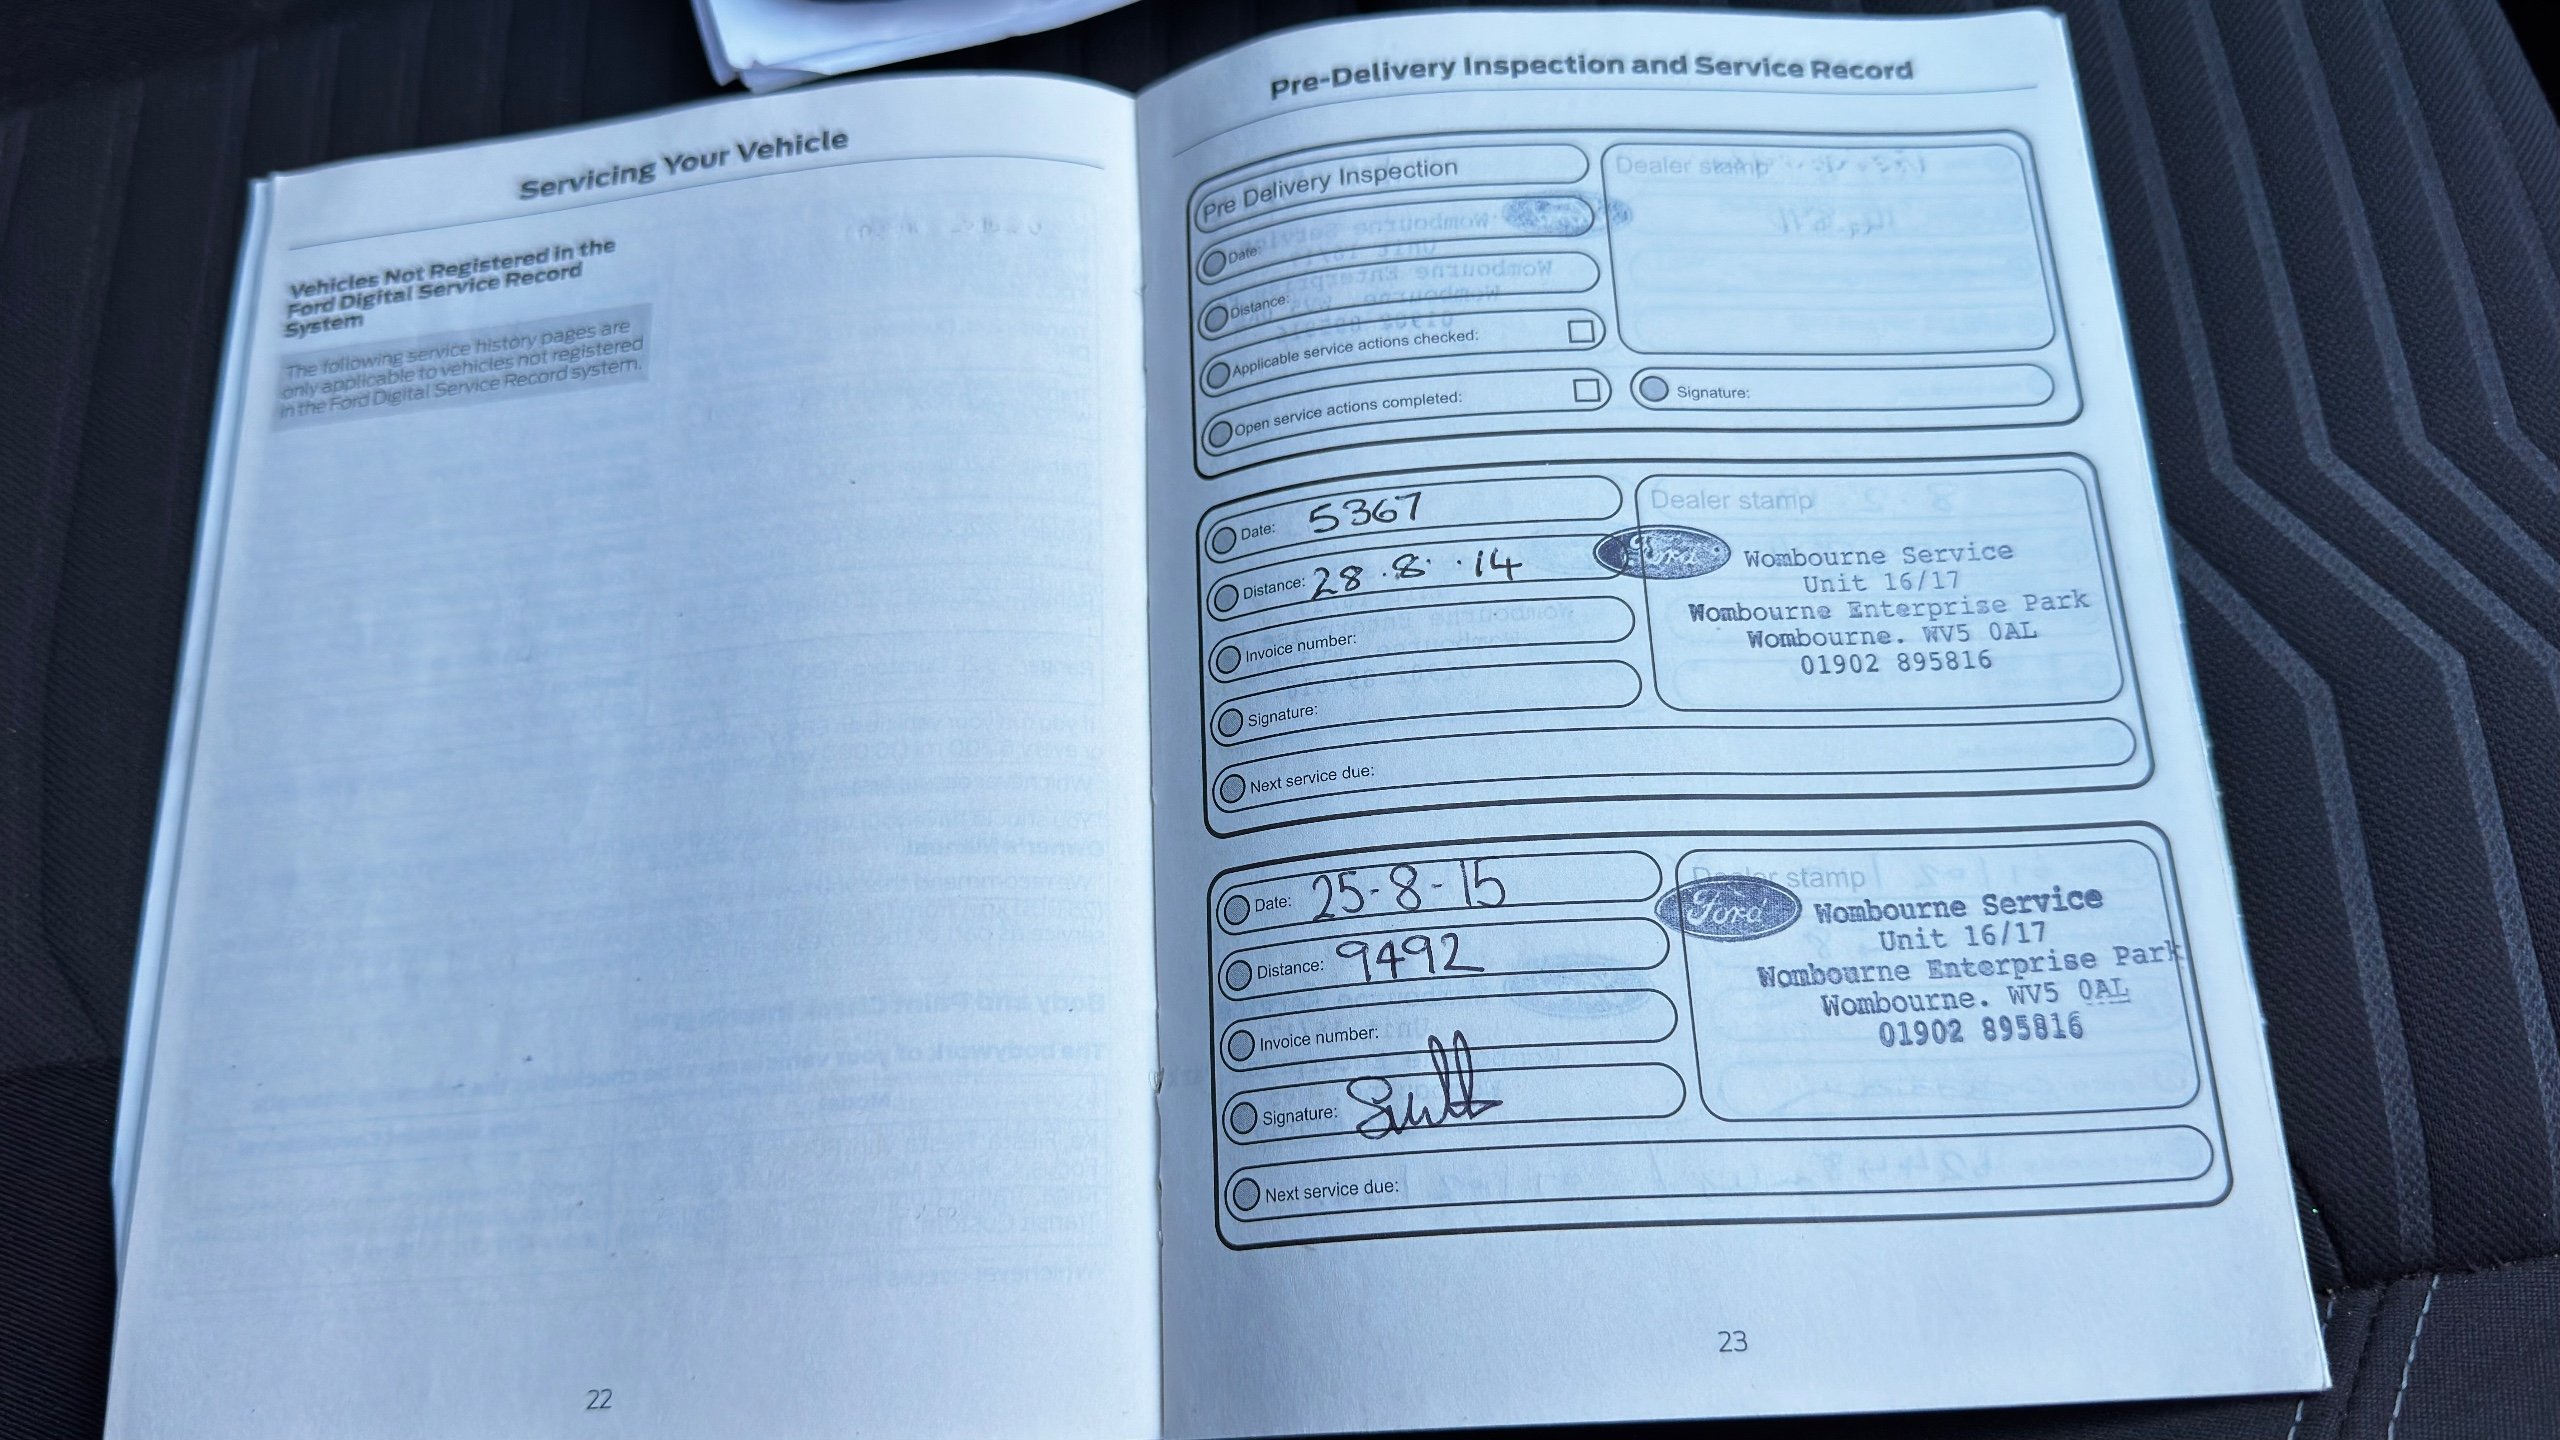 Servicing Your Vehicle
Vehicles Not Registered in the
Ford Digital Service Record
System
The following service history pages are
only applicable to vehicles not registered
in the Ford Digital Service Record system.
22
Pre-Delivery Inspection and Service Record
Pre Delivery Inspection
Date:
Distance:
Applicable service actions checked:
Open service actions completed:
Dealer stamp
Signature:
Date: 5367
Distance: 28.8.14
Invoice number:
Signature:
Next service due:
Dealer stamp
Ford Wombourne Service
Unit 16/17
Wombourne Enterprise Park
Wombourne. WV5 0AL
01902 895816
Date: 25-8-15
Distance: 9492
Invoice number:
Signature:
Next service due:
Dealer stamp
Ford Wombourne Service
Unit 16/17
Wombourne Enterprise Park
Wombourne. WV5 0AL
01902 895816
23